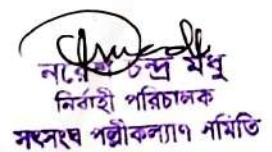 নরেশ চন্দ্র মধু
নির্বাহী পরিচালক
সৎসংঘ পল্লীকল্যাণ সমিতি